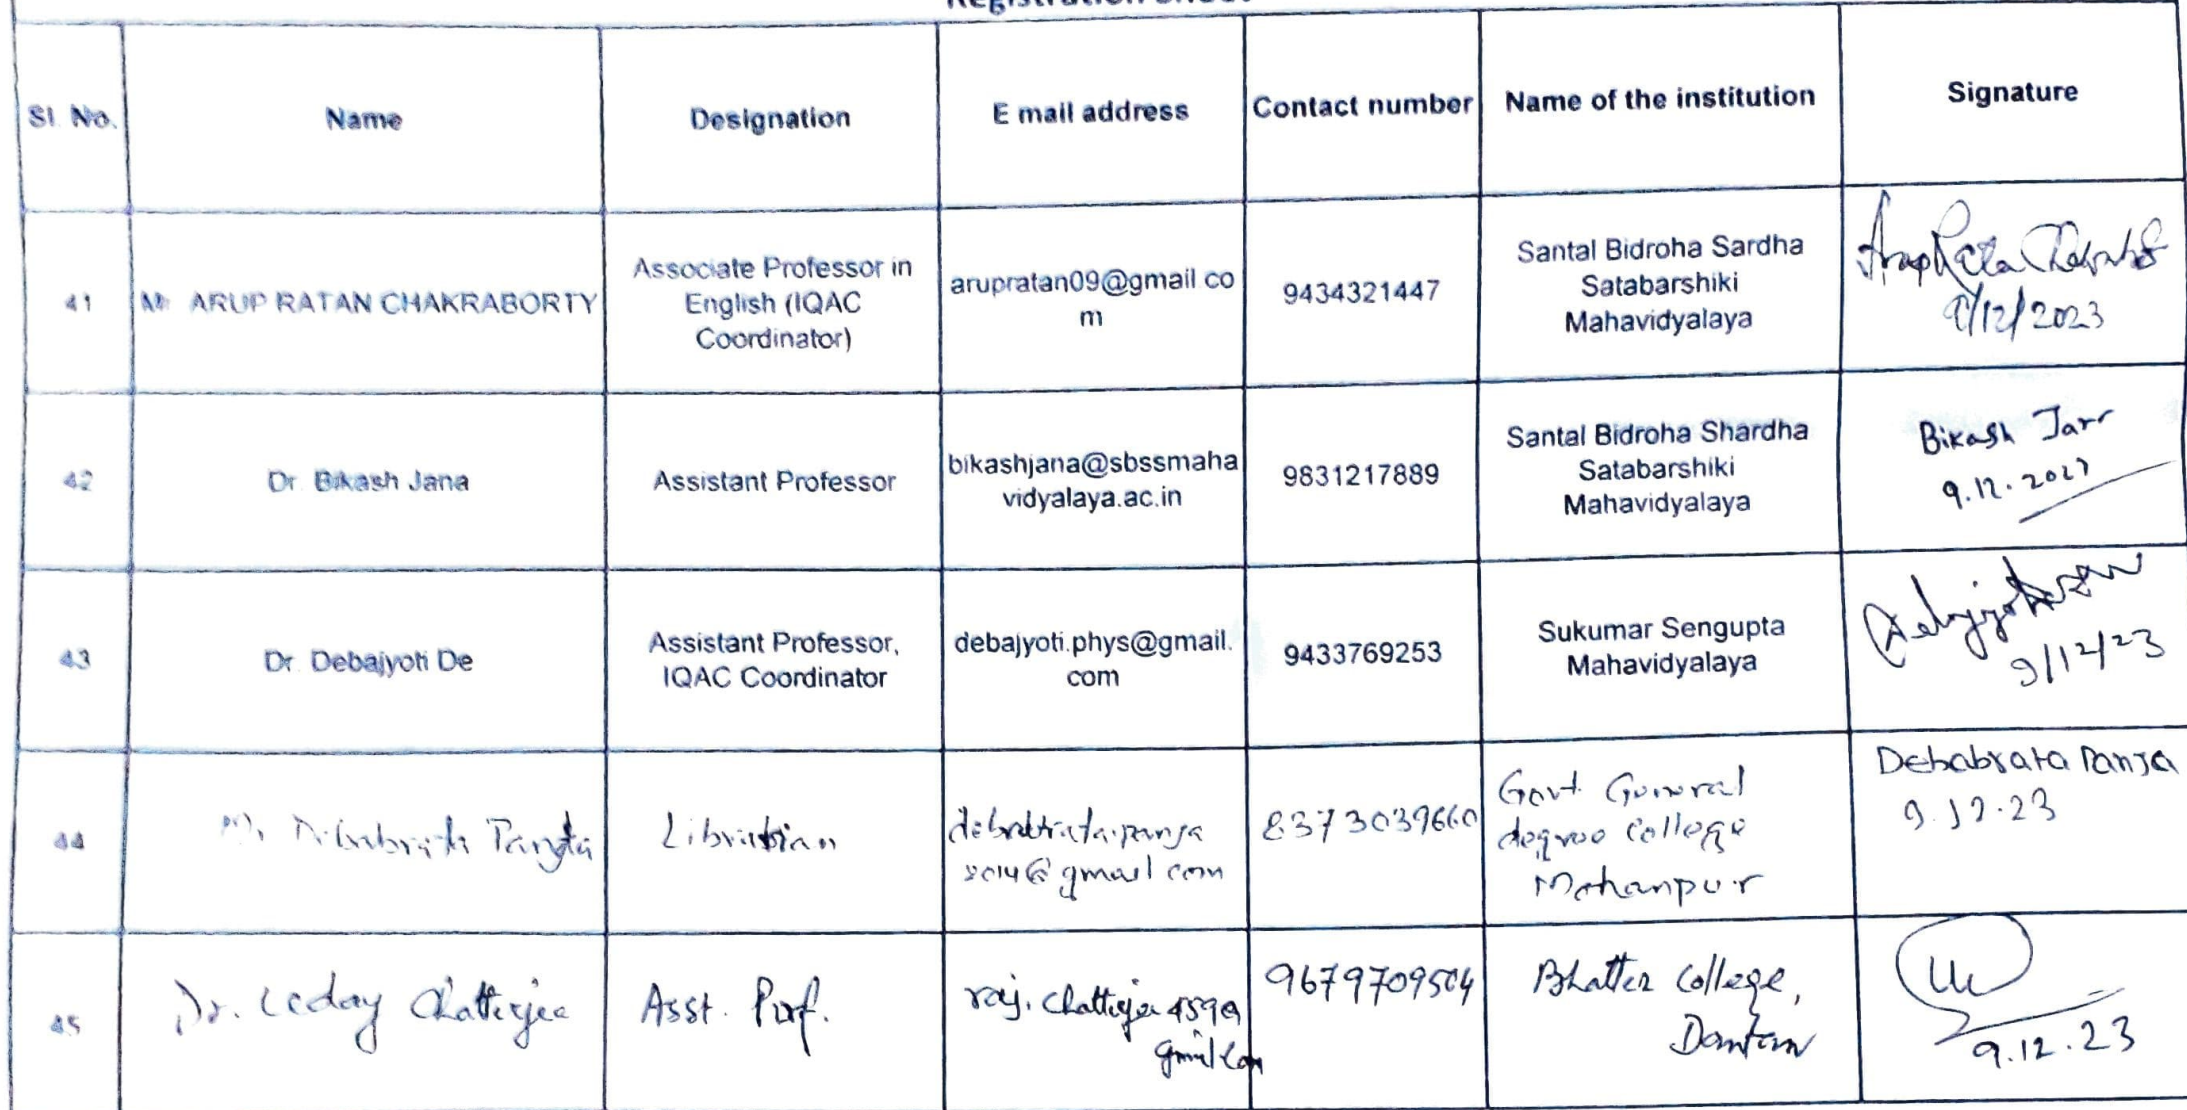 Registration Sheet
Sl. No.
Name
Designation
E mail address
Contact number
Name of the institution
Signature
41
Mr ARUP RATAN CHAKRABORTY
Associate Professor in
English (IQAC
Coordinator)
arupratan09@gmail.co
m
9434321447
Santal Bidroha Sardha
Satabarshiki
Mahavidyalaya
9/12/2023
42
Dr. Bikash Jana
Assistant Professor
bikashjana@sbssmaha
vidyalaya.ac.in
9831217889
Santal Bidroha Shardha
Satabarshiki
Mahavidyalaya
Bikash Jana
9.12.2023
43
Dr. Debajyoti De
Assistant Professor,
IQAC Coordinator
debajyoti.phys@gmail.
com
9433769253
Sukumar Sengupta
Mahavidyalaya
9/12/23
44
Debabrata Panja
Librarian
debabrata.panja
2014@gmail.com
8373039660
Govt. General
degree College
Mohanpur
Debabrata Panja
9.12.23
45
Dr. Uday Chatterjee
Asst. Prof.
raj.chatterjee459@
gmail.com
9679709504
Bhatter College,
Dantan
9.12.23